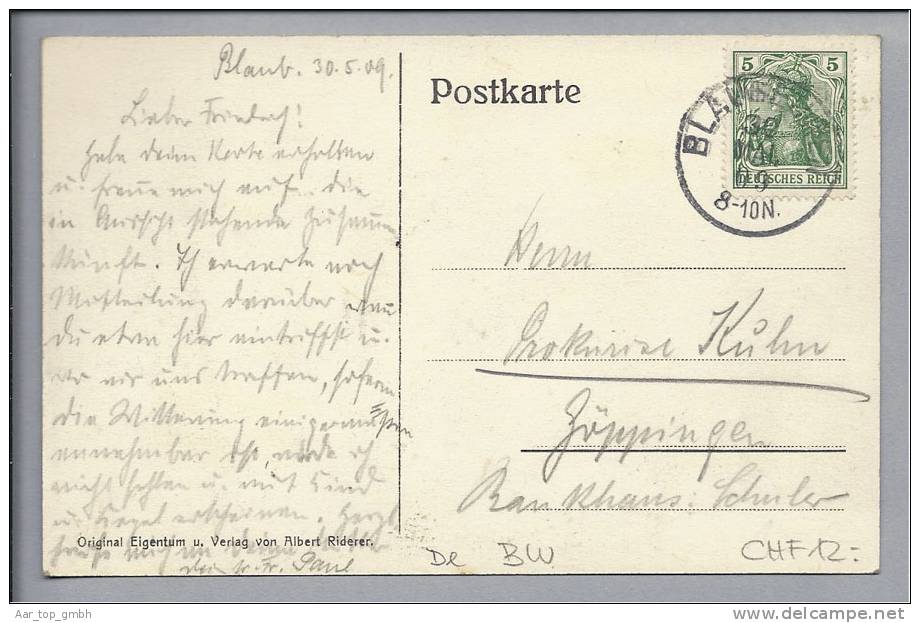 Blaub. 30.5.09.
Lieber Friedrich!
Habe deine Karte erhalten
u. freue mich auf die
in Aussicht stehende Zusammen
kunft. Ich erwarte noch
Mitteilung darüber wann
du etwa hier eintriffst u.
wo wir uns treffen, sofern
die Witterung einigermaßen
annehmbar ist, werde ich
nicht fehlen u. mit Kind
u. Kegel erscheinen. Herzl
Paul
Original Eigentum u. Verlag von Albert Riderer.
Postkarte
5 5
DEUTSCHES REICH
BLAUB
30
09
8-10N.
Herrn
Prokurist Kuhn
Göppingen
Bankhaus: Schuler
De BW
CHF 12.-
Aar_top_gmbh
www.delcampe.net